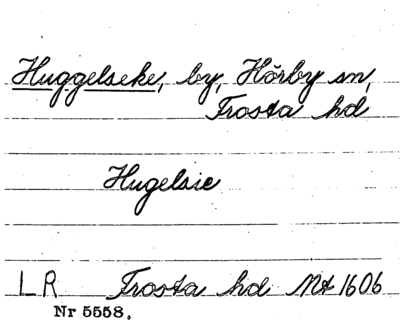 Huggelseke, by, Hörby sn,
Frosta hd
Hugelsie
LR Frosta hd Mt 1606
Nr 5558.